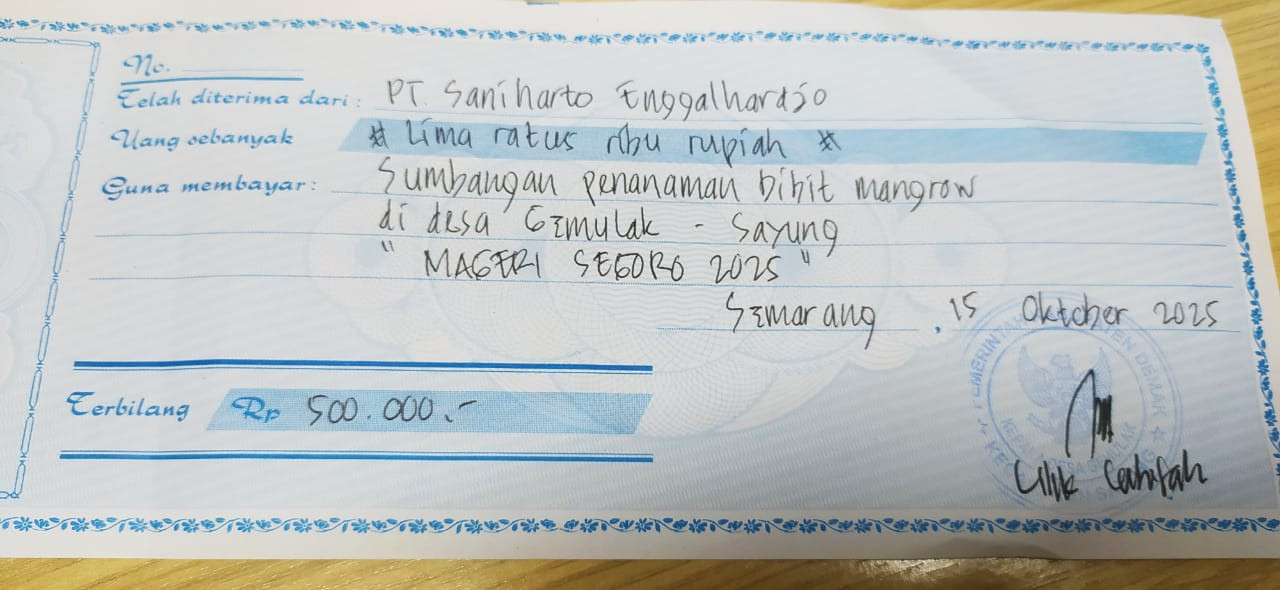 No.
Telah diterima dari : PT. Saniharto Enggalhardjo
Uang sebanyak # Lima ratus ribu rupiah #
Guna membayar : Sumbangan penanaman bibit mangrow
di desa Gemulak - Sayung
" MAGERI SEGORO 2025 "
Semarang , 15 Oktober 2025
Terbilang Rp 500.000.-
PEMERINTAH KABUPATEN DEMAK
KEPALA DESA
Lilik